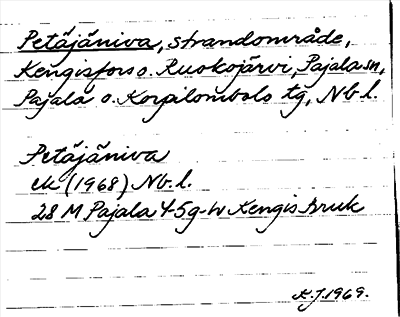 Petäjäniva, strandområde,
Kengisfors o. Ruokojärvi, Pajala sn,
Pajala o. Korpilombolo tg, Nb.l.
Petäjäniva
ek (1968) Nb.l.
28 M Pajala 4-5 g-h Kengis bruk
K.J. 1969.